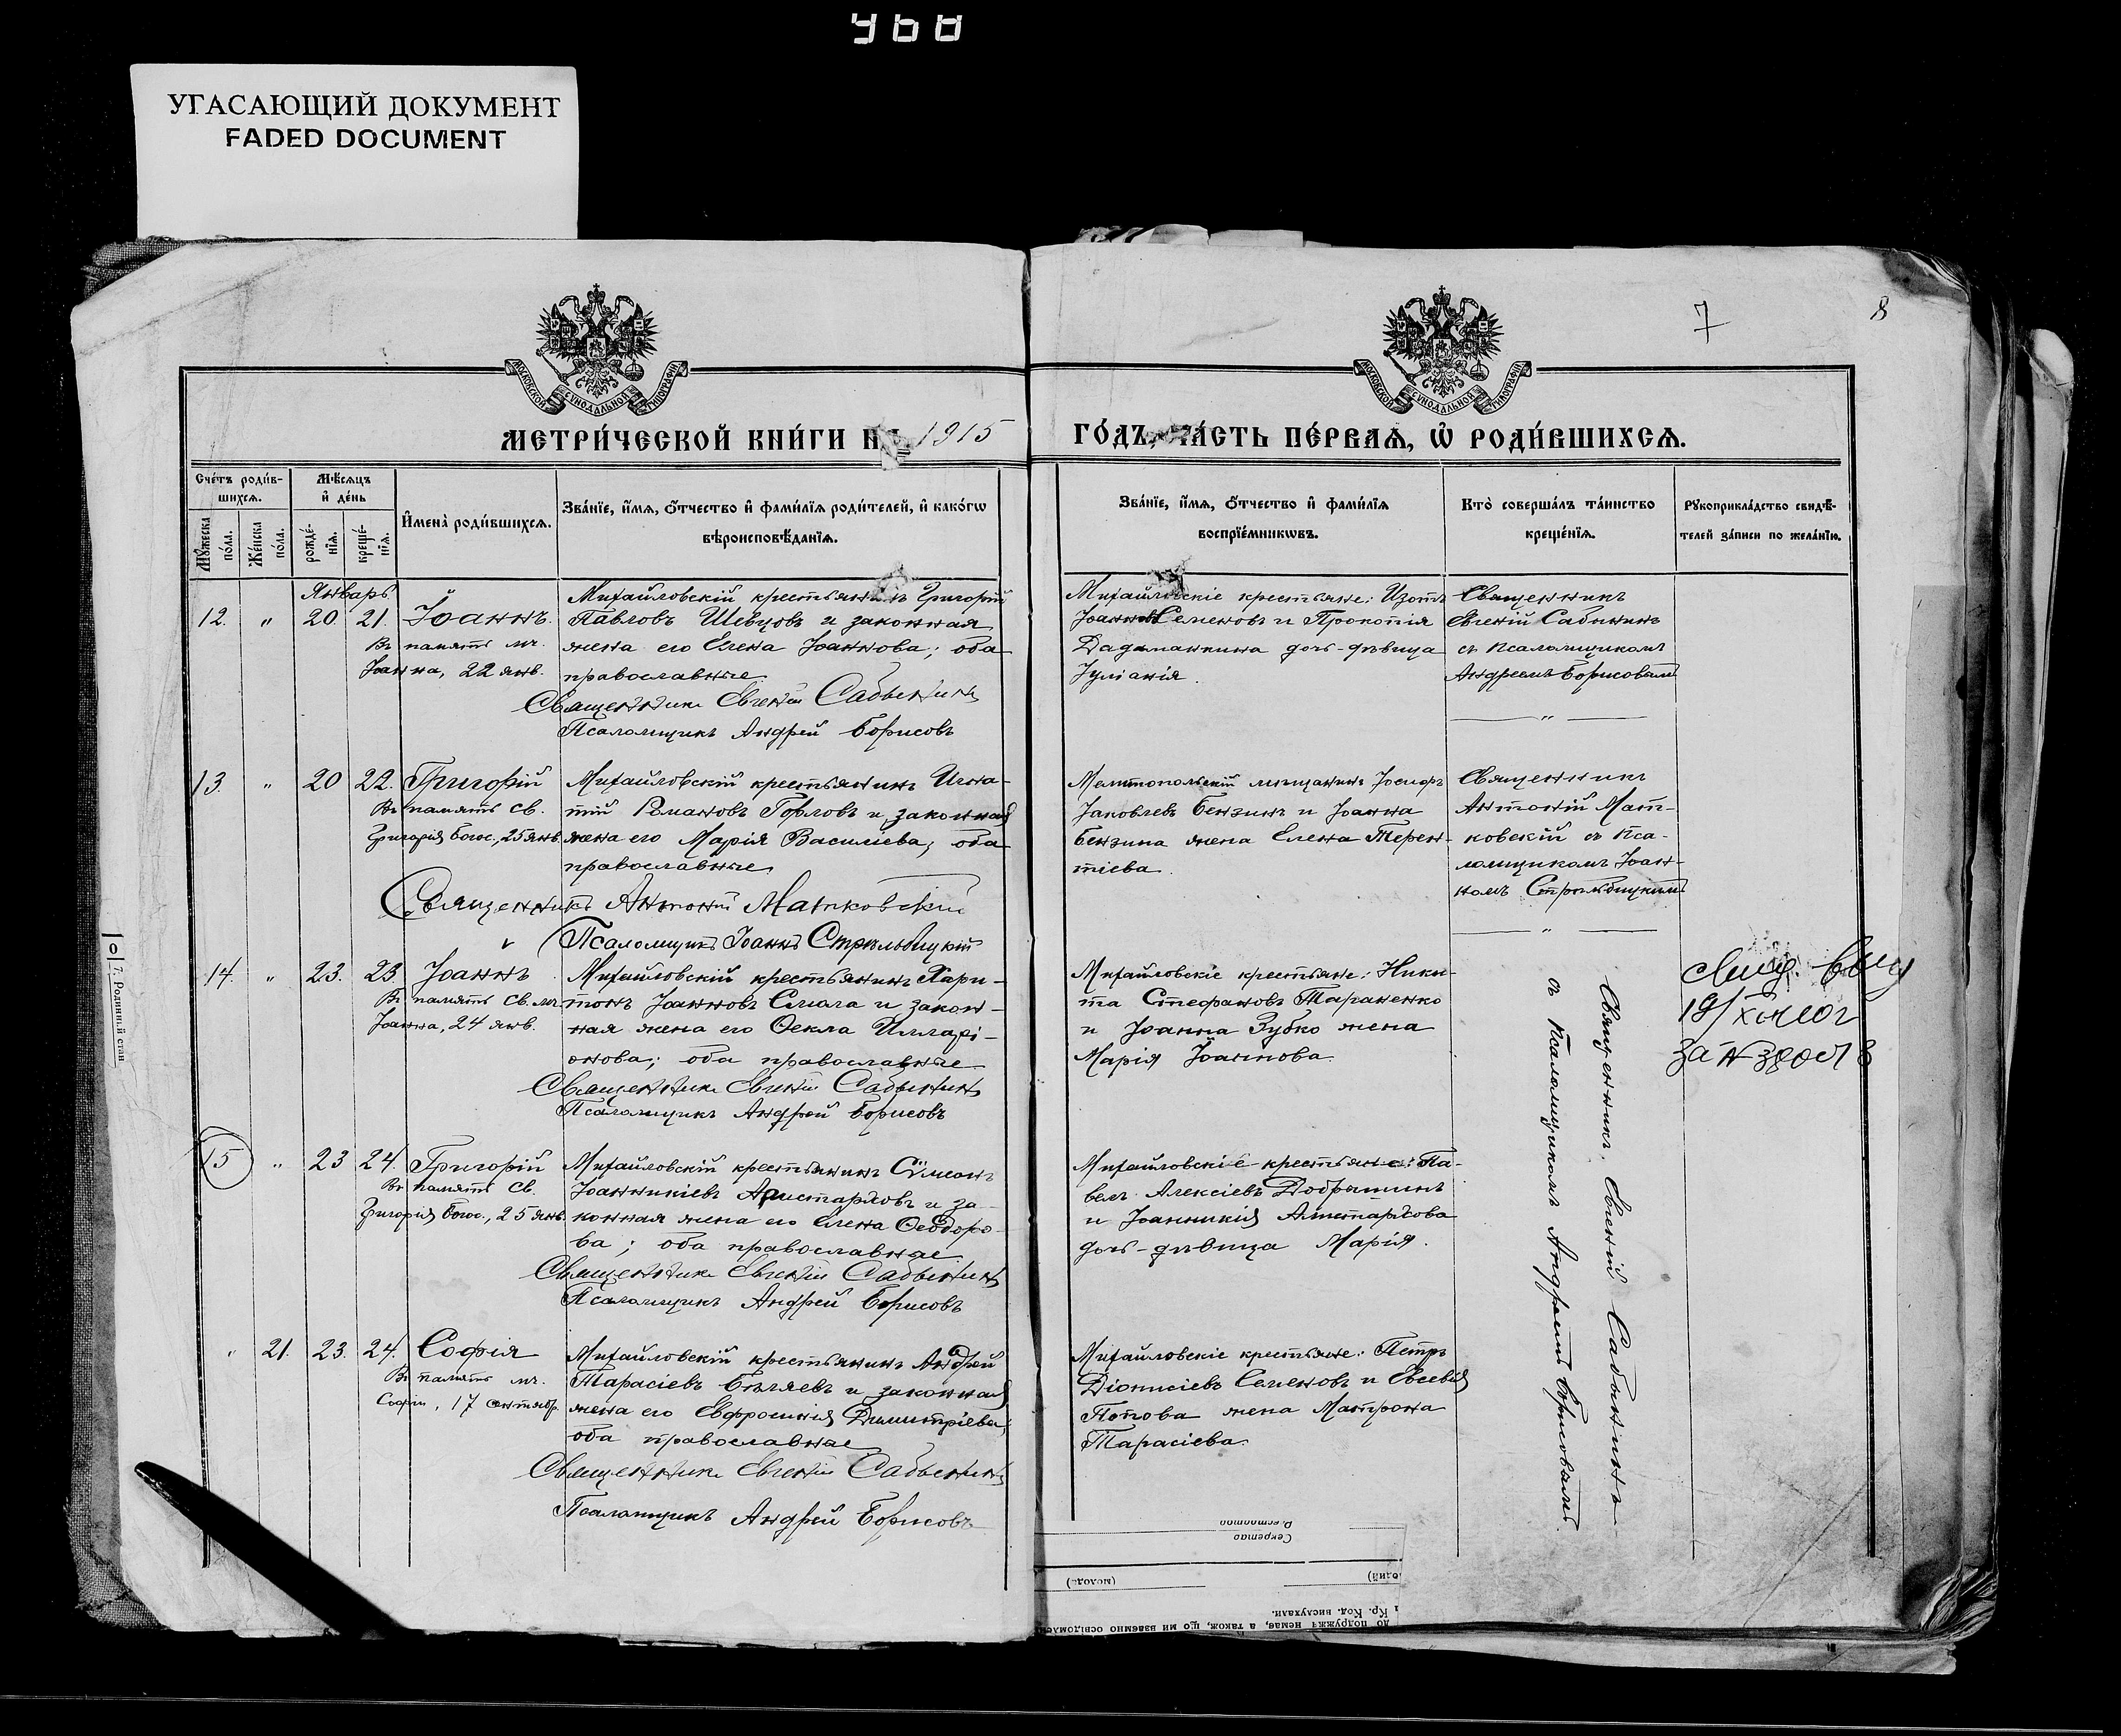 968
УГАСАЮЩИЙ ДОКУМЕНТ
FADED DOCUMENT
7
8
МОСКОВСКОЙ СѴНОДАЛЬНОЙ ТИПОГРАФІИ
МОСКОВСКОЙ СѴНОДАЛЬНОЙ ТИПОГРАФІИ
МЕТРИ́ЧЕСКОЙ КНИ́ГИ НА 1915
ГО́ДЪ, ЧА́СТЬ ПЕ́РВАѦ, Ѽ РОДИ́ВШИХСѦ.
Сче́тъ роди́в-
шихсѧ.
Мꙋ́жеска по́ла.
Же́нска по́ла.
Мѣ́сѧцъ
и҆ де́нь
рожде́-
нїѧ.
креще́-
нїѧ.
И҆мена̀ роди́вшихсѧ.
Зва́нїе, и҆́мѧ, ѻ҆́тчество и҆ фами́лїѧ роди́телей, и҆ како́гѡ
вѣроисповѣ́данїѧ.
Зва́нїе, и҆́мѧ, ѻ҆́тчество и҆ фами́лїѧ
воспрїе́мникѡвъ.
Кто̀ соверша́лъ та́инство
креще́нїѧ.
Рꙋкоприкла́дство свидѣ́-
телей за́писи по жела́нїю.
Январь
12. " 20 21. Іоаннъ.
Въ память мч.
Іоанна, 22 янв.
Михайловскій крестьянинъ Григорій
Павловъ Шевцовъ и законная
жена его Елена Іоаннова; оба
православные
Священникъ Евгеній Сабынинъ
Псаломщикъ Андрей Борисовъ
Михайловскіе крестьяне: Изотъ
Іоанновъ Семеновъ и Прокопія
дочь-дѣвица
Іуліанія.
Священникъ
Евгеній Сабынинъ
съ псаломщикомъ
Андреемъ Борисовымъ
"
13. " 20 22. Григорій
Въ память св.
Григорія Богос., 25 янв.
Михайловскій крестьянинъ Игна-
тій Романовъ Горловъ и законная
жена его Марія Василіева; оба
православные
Священникъ Антоній Матковскій
Псаломщикъ Іоаннъ Стрѣльбицкій
Мелитопольскій мѣщанинъ Іосифъ
Іаковлевъ Бензинъ и Іоанна
Бензина жена Елена Терен-
тіева.
Священникъ
Антоній Мат-
ковскій съ пса-
ломщикомъ Іоан-
номъ Стрѣльбицкимъ
"
14. " 23. 23. Іоаннъ
Въ память св. мч.
Іоанна, 24 янв.
Михайловскій крестьянинъ Хари-
тонъ Іоанновъ Смола и закон-
ная жена его Ѳекла Илларі-
онова; оба православные
Священникъ Евгеній Сабынинъ
Псаломщикъ Андрей Борисовъ
Михайловскіе крестьяне: Ники-
та Стефановъ Тараненко
и Іоанна Зубко жена
Марія Іоаннова.
Священникъ Евгеній Сабынинъ
съ псаломщикомъ Андреемъ Борисовымъ.
15 " 23 24. Григорій
Въ память св.
Григорія Богос., 25 янв.
Михайловскій крестьянинъ Сѵмеонъ
Іоанникіевъ Аристарховъ и за-
конная жена его Елена Ѳеодоро-
ва; оба православные
Священникъ Евгеній Сабынинъ
Псаломщикъ Андрей Борисовъ
Михайловскіе крестьяне: Па-
велъ Алексіевъ Добрынинъ
и Іоанникія Аристархова
дочь-дѣвица Марія.
" 21. 23. 24. Софія
Въ память мч.
Софіи, 17 сентябр.
Михайловскій крестьянинъ Андрей
Тарасіевъ Бѣляевъ и законная
жена его Евфросинія Димитріева;
оба православные
Священникъ Евгеній Сабынинъ
Псаломщикъ Андрей Борисовъ
Михайловскіе крестьяне: Петръ
Діонисіевъ Семеновъ и Евсевія
Попова жена Матрона
Тарасіева.
7. Родинний стан
Секретар
(молодь)
Кр. Код. вислухали.
до подружжя немає, а також, що ми взаємно освідомлені